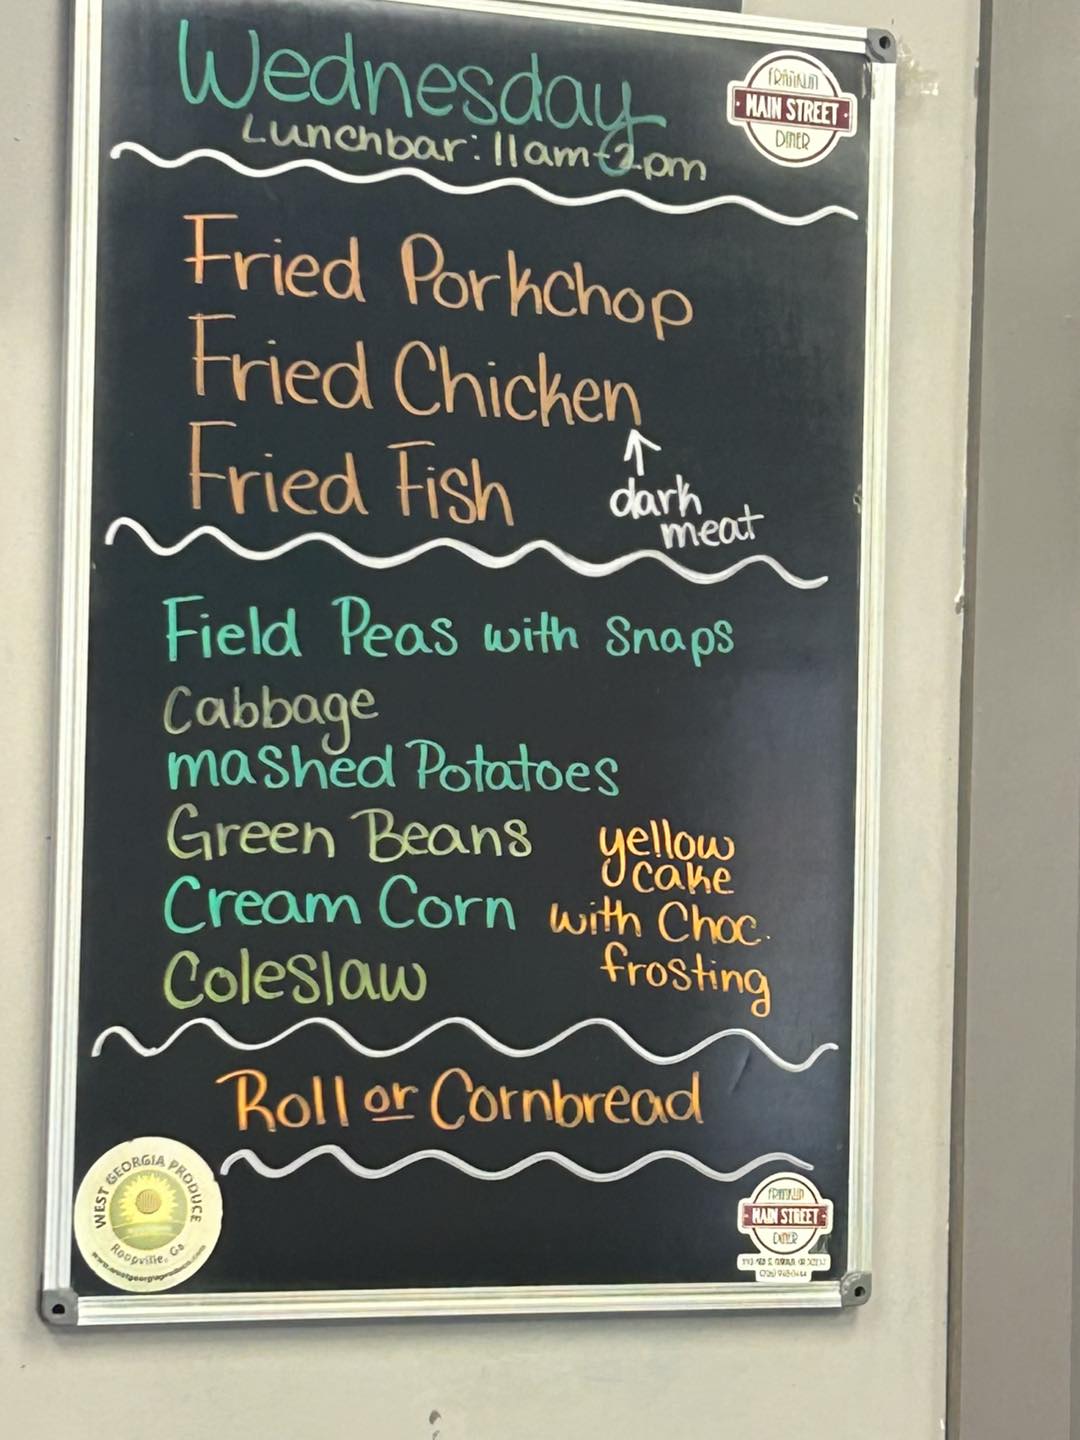 Wednesday
Lunchbar: 11am-2pm
FRANKLIN
MAIN STREET
DINER
Fried Porkchop
Fried Chicken
Fried Fish
dark
meat
Field Peas with Snaps
Cabbage
mashed Potatoes
Green Beans
Cream Corn
Coleslaw
yellow
cake
with Choc.
frosting
Roll or Cornbread
WEST GEORGIA PRODUCE
Roopville, Ga
www.westgeorgiaproduce.com
FRANKLIN
MAIN STREET
DINER